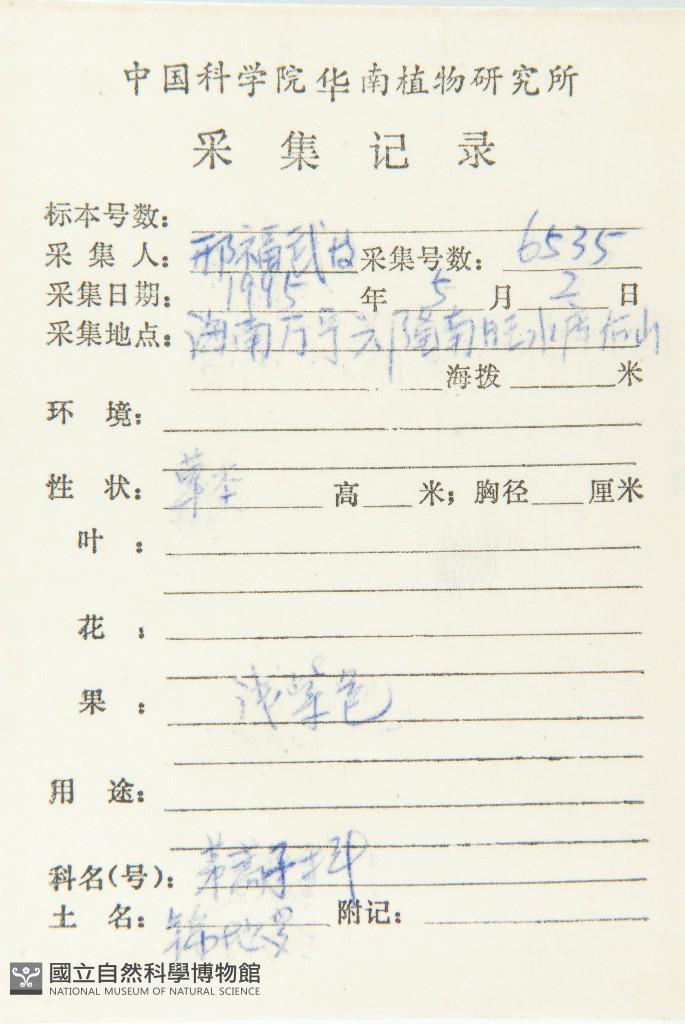 中国科学院华南植物研究所
采集记录
标本号数：
采集人：邢福武 采集号数：6535
采集日期：1995年5月2日
采集地点：海南万宁兴隆南旺水库
海拨 米
环境：
性状：草本 高 米；胸径 厘米
叶：
花：
果：浅紫色
用途：
科名(号)：
土名： 附记：
國立自然科學博物館
NATIONAL MUSEUM OF NATURAL SCIENCE